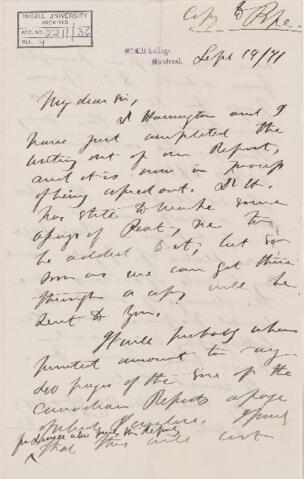 McGILL UNIVERSITY
ARCHIVES
ACC. NO. 2211/32
REF. 4
Copy to Pope.
McGill College
Montreal
Sept 19/71
My dear Sir,
Harrington and I
have just completed the
writing out of our Report,
and it is now in process
of being copied out. Dr H.
has still to make some
of Peat, &c to
be added to it; but so
soon as we can get this
through a copy will be
sent to you.
It will probably when
printed amount to say
pages of the size of the
Canadian Reports
that this will cost